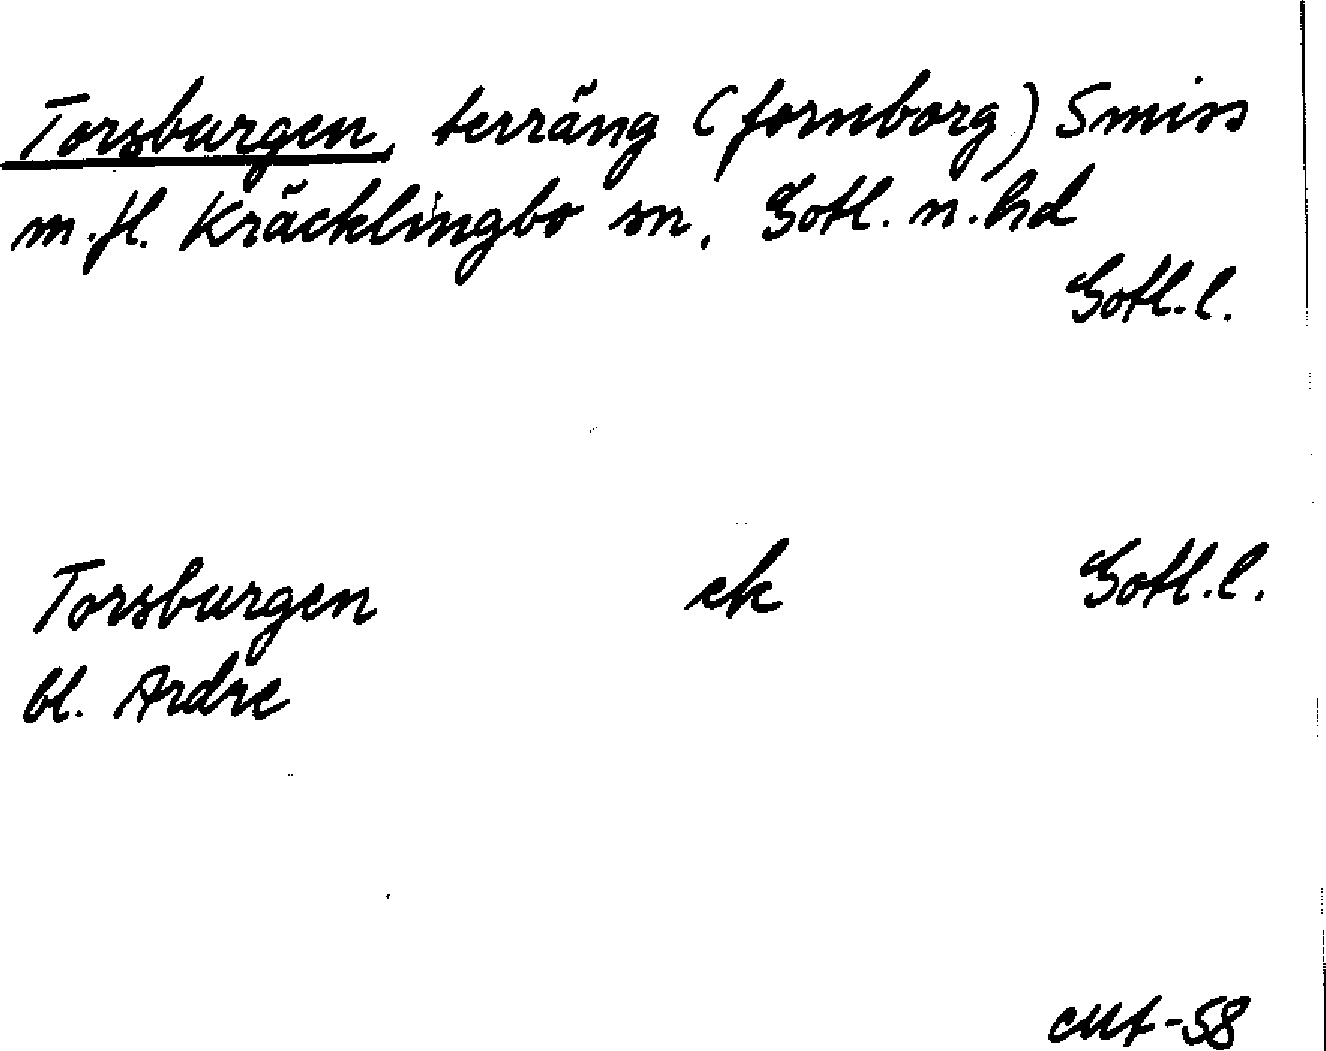 Torsburgen, terräng (fornborg) Smiss
m.fl. Kräcklingbo sn, Gotl. n. hd
Gotl. l.
Torsburgen ek Gotl. l.
bl. Ardre